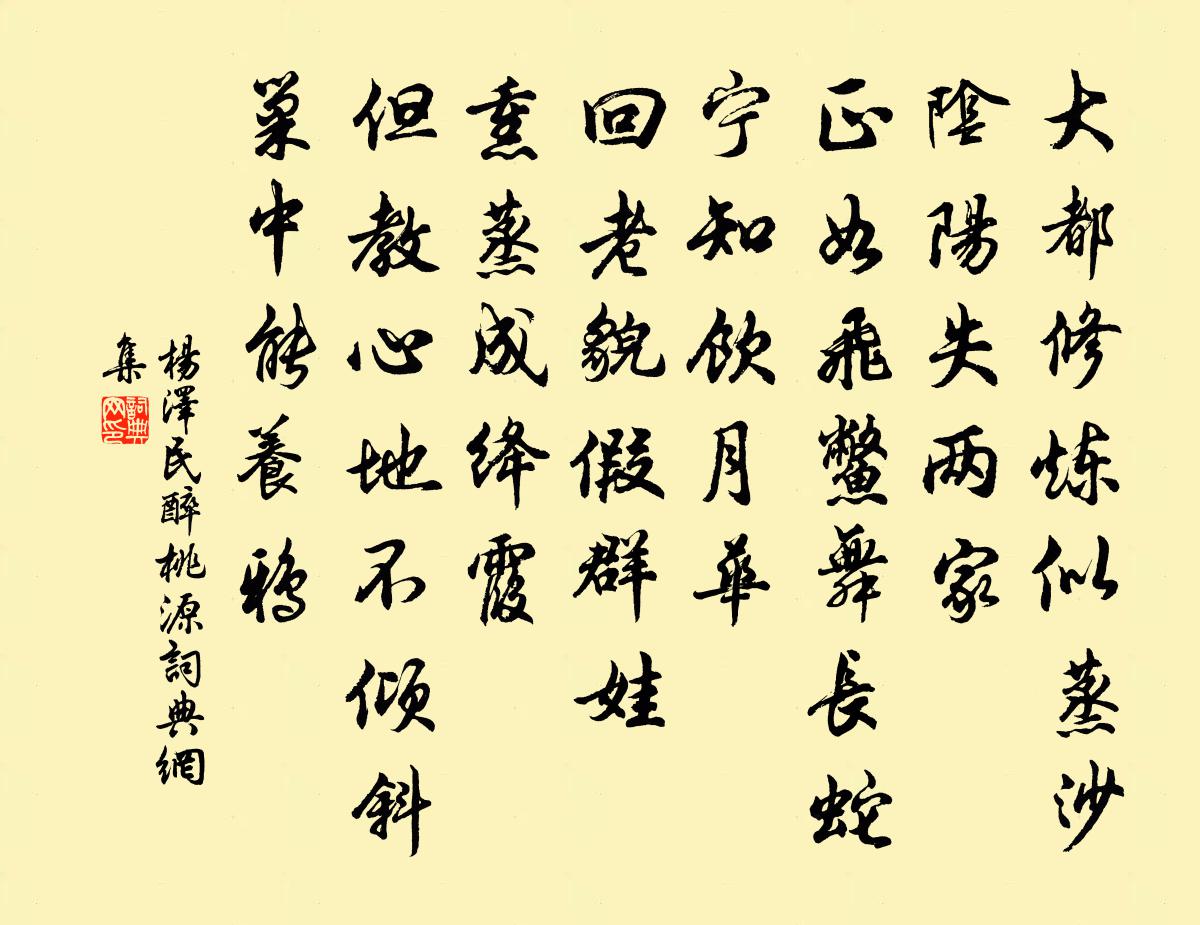 大都修炼似蒸沙
陰陽失两家
正如飛鱉舞長蛇
宁知飲月華
回老貌假群娃
熏蒸成绛霞
但教心地不倾斜
巢中能養鴉
楊澤民醉桃源詞典網
集
詞典
网印